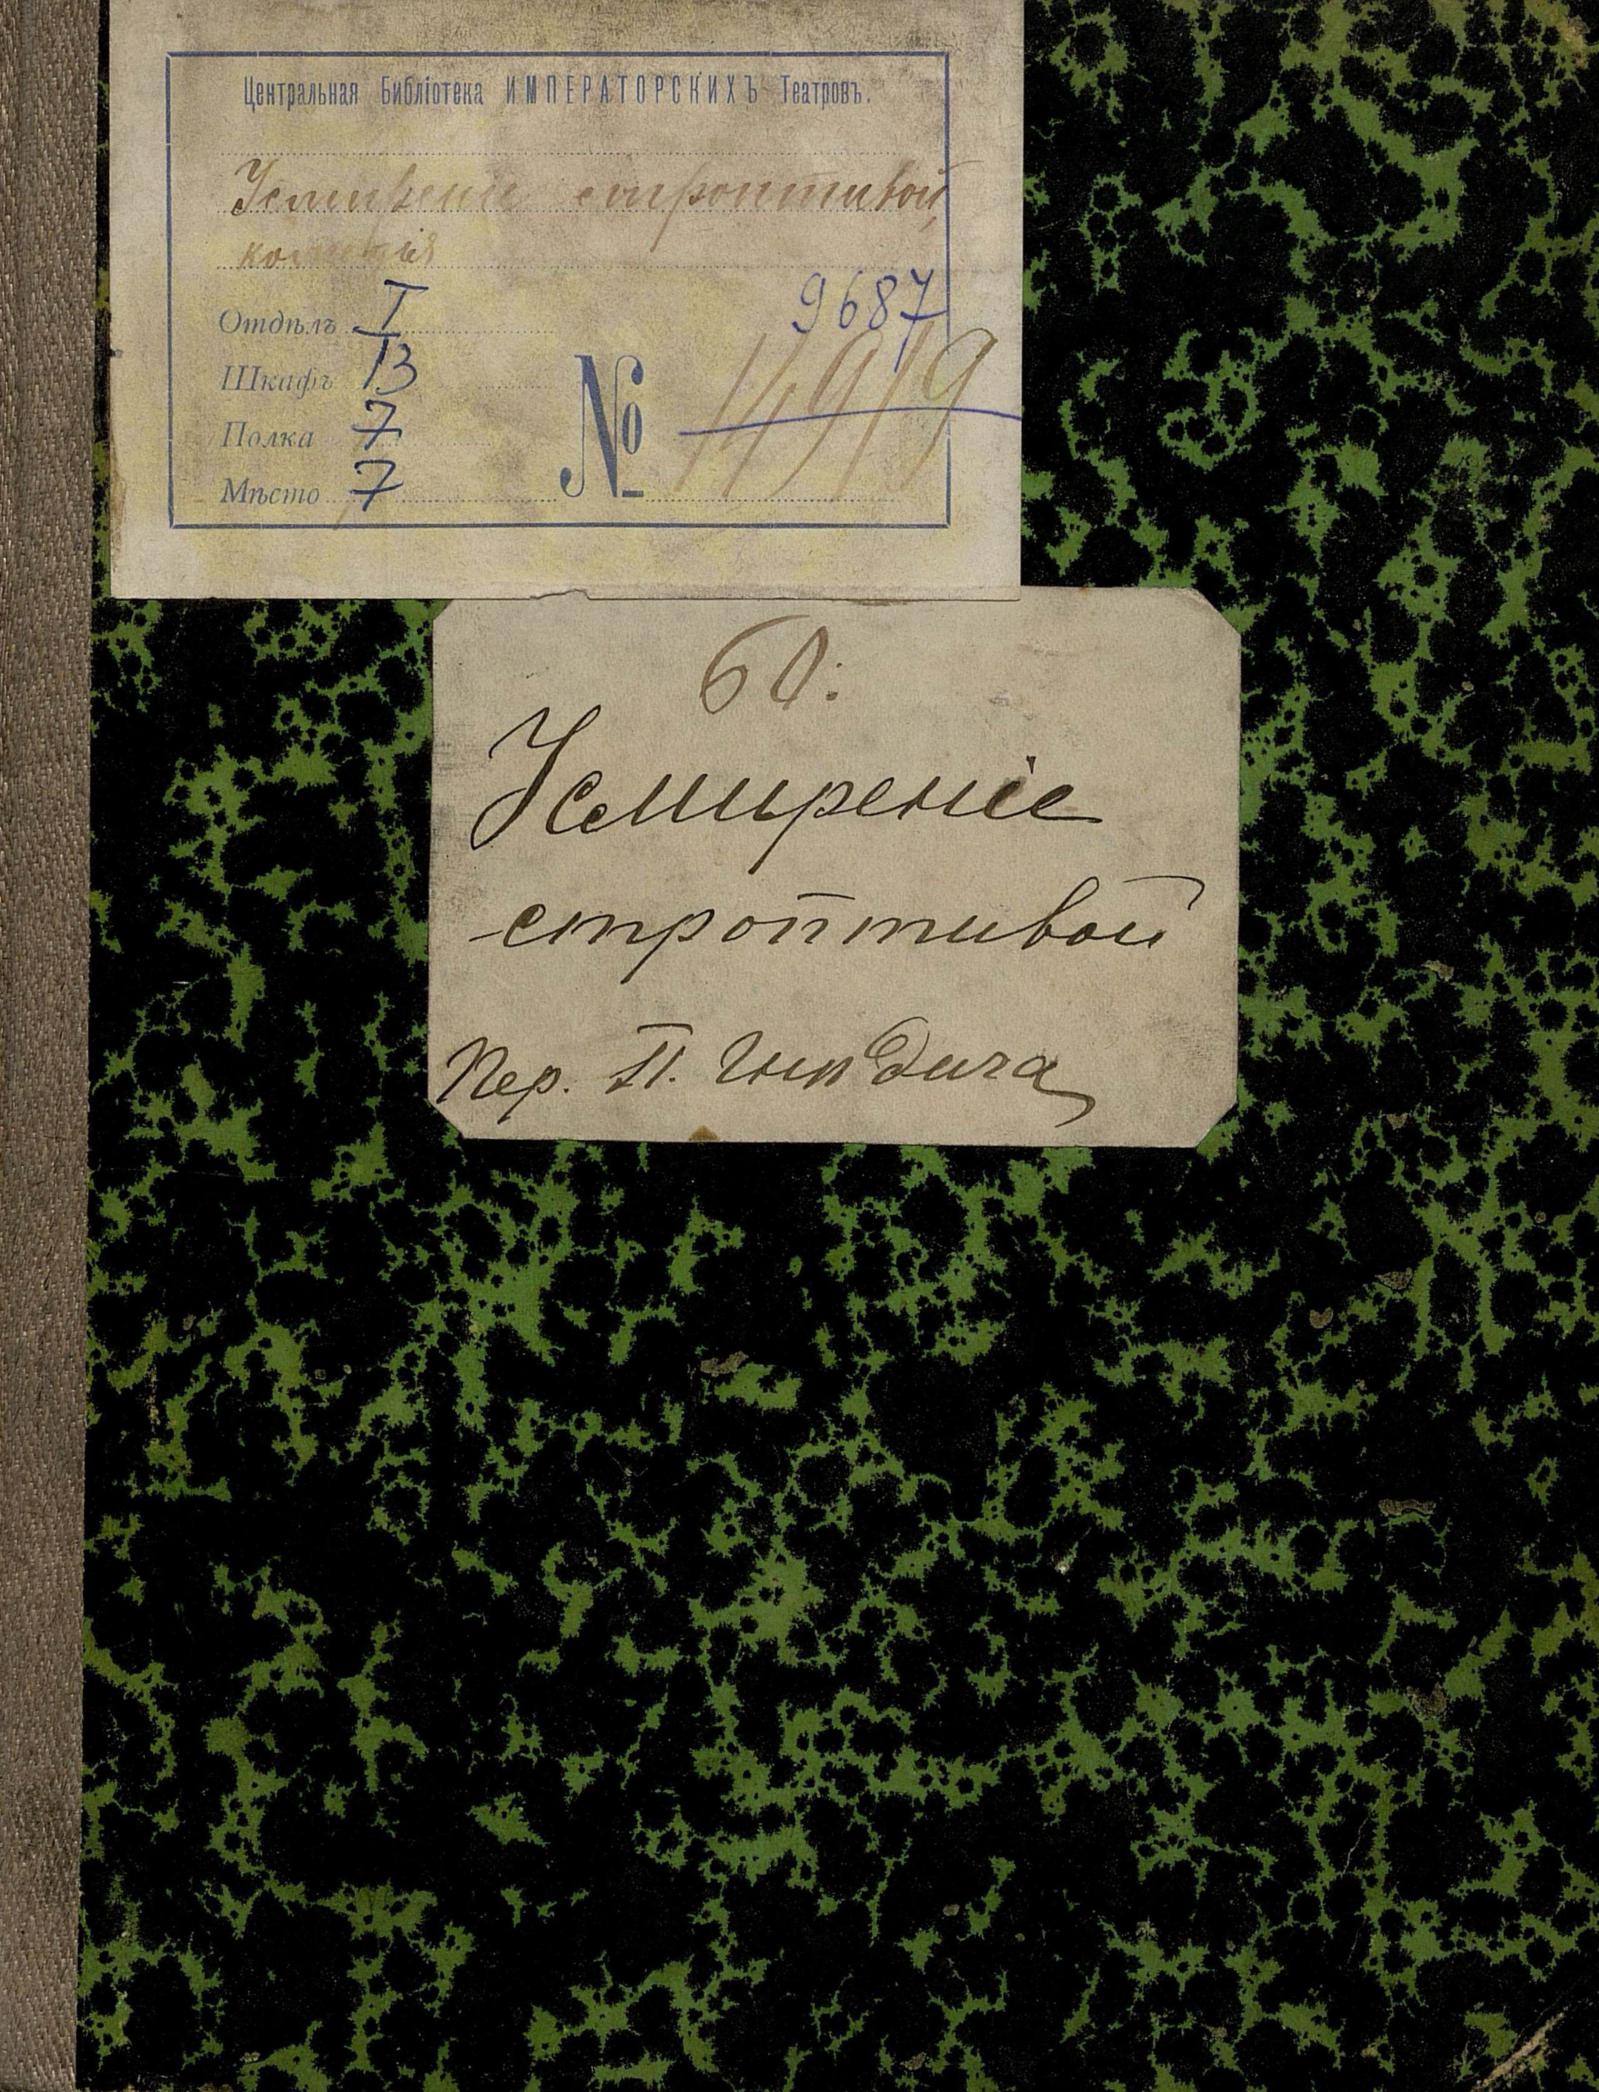 Центральная Библіотека ИМПЕРАТОРСКИХЪ Театровъ.
Усмиреніе строптивой,
комедія
9687
Отдѣлъ I
Шкафъ 13
Полка 7
№ 14919
Мѣсто 7
60.
Усмиреніе
строптивой
Пер. П. Гнѣдича